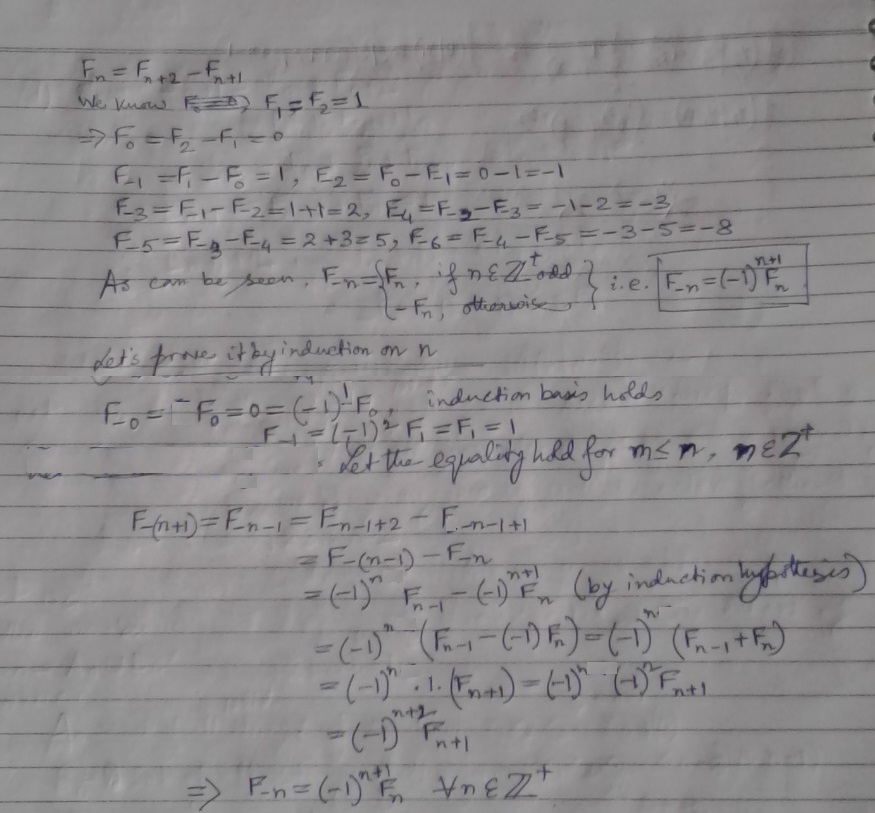 Fₙ = Fₙ₊₂ − Fₙ₊₁
We know F₁ = F₂ = 1
⇒ F₀ = F₂ − F₁ = 0
F₋₁ = F₁ − F₀ = 1, F₋₂ = F₀ − F₋₁ = 0 − 1 = −1
F₋₃ = F₋₁ − F₋₂ = 1 + 1 = 2, F₋₄ = F₋₂ − F₋₃ = −1 − 2 = −3
F₋₅ = F₋₃ − F₋₄ = 2 + 3 = 5, F₋₆ = F₋₄ − F₋₅ = −3 − 5 = −8
As can be seen, F₋ₙ = { Fₙ, if n ε Z⁺ odd } i.e. F₋ₙ = (−1)ⁿ⁺¹ Fₙ
{ −Fₙ, otherwise }
Let's prove it by induction on n
F₋₀ = − F₀ = 0 = (−1)¹ F₀, induction basis holds
F₋₁ = (−1)² F₁ = F₁ = 1
Let the equality hold for m ≤ n, m ε Z⁺
F₋₍ₙ₊₁₎ = F₋ₙ₋₁ = F₋ₙ₋₁₊₂ − F₋ₙ₋₁₊₁
= F₋₍ₙ₋₁₎ − F₋ₙ
= (−1)ⁿ Fₙ₋₁ − (−1)ⁿ⁺¹ Fₙ (by induction hypothesis)
= (−1)ⁿ (Fₙ₋₁ − (−1) Fₙ) = (−1)ⁿ (Fₙ₋₁ + Fₙ)
= (−1)ⁿ . 1. (Fₙ₊₁) = (−1)ⁿ (−1)² Fₙ₊₁
= (−1)ⁿ⁺² Fₙ₊₁
⇒ F₋ₙ = (−1)ⁿ⁺¹ Fₙ ∀ n ε Z⁺